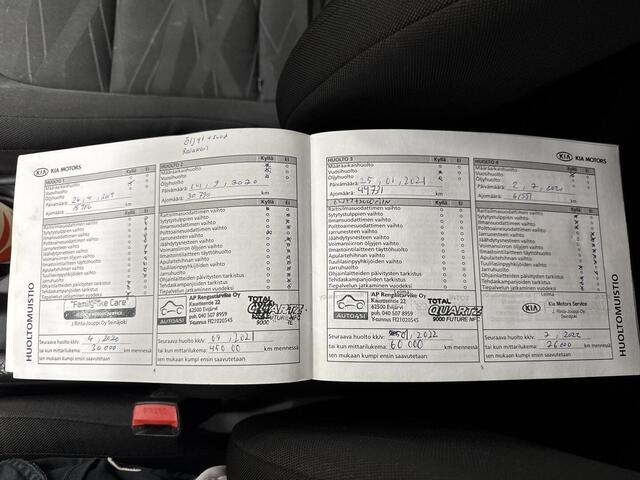 öljyt + suod
KIA MOTORS
HUOLTO 1 Kyllä Ei
Määräaikaishuolto
Vuosihuolto
Öljyhuolto
Päivämäärä:
Ajomäärä:
Raitisilmasuodattimen vaihto
Sytytystulppien vaihto
Ilmansuodattimen vaihto
Polttoainesuodattimen vaihto
Jarrunesteen vaihto
Jäähdytysnesteen vaihto
Voimansiirron öljyjen vaihto
Ilmastointilaitteen täyttöhuolto
Apulaitehihnan vaihto
Tuulilasinpyyhkijöiden vaihto
Jarruhuolto
Ohjainlaitteiden päivitysten tarkistus
Tehdaskampanjoiden tarkistus
Tiepalvelun jatkaminen vuodeksi
"Familylike Care"
J.Rinta-Jouppi Oy Seinäjoki
Seuraava huolto kk/v: 4, 2020
tai kun mittarilukema: 30 000 km mennessä
sen mukaan kumpi ensin saavutetaan
HUOLTO 2 Kyllä Ei
Määräaikaishuolto
Vuosihuolto
Öljyhuolto
Päivämäärä: 14, 9, 2020
Ajomäärä: 30 790
Raitisilmasuodattimen vaihto
Sytytystulppien vaihto
Ilmansuodattimen vaihto
Polttoainesuodattimen vaihto
Jarrunesteen vaihto
Jäähdytysnesteen vaihto
Voimansiirron öljyjen vaihto
Ilmastointilaitteen täyttöhuolto
Apulaitehihnan vaihto
Tuulilasinpyyhkijöiden vaihto
Jarruhuolto
Ohjainlaitteiden päivitysten tarkistus
Tehdaskampanjoiden tarkistus
Tiepalvelun jatkaminen vuodeksi
AUTOASI
AP Rengastarvike Oy
Kauottentie 22
62500 Evijärvi
puh. 040 507 8959
Y-tunnus FI21020545
TOTAL
QUARTZ
9000
Seuraava huolto kk/v: 09, 2021
tai kun mittarilukema: 45000 km mennessä
sen mukaan kumpi ensin saavutetaan
4
HUOLTOMUISTIO
KIA MOTORS
HUOLTO 3 Kyllä Ei
Määräaikaishuolto
Vuosihuolto
Öljyhuolto
Päivämäärä: 25, 01, 2021
Ajomäärä: 44731
Raitisilmasuodattimen vaihto
Sytytystulppien vaihto
Ilmansuodattimen vaihto
Polttoainesuodattimen vaihto
Jarrunesteen vaihto
Jäähdytysnesteen vaihto
Voimansiirron öljyjen vaihto
Ilmastointilaitteen täyttöhuolto
Apulaitehihnan vaihto
Tuulilasinpyyhkijöiden vaihto
Jarruhuolto
Ohjainlaitteiden päivitysten tarkistus
Tehdaskampanjoiden tarkistus
Tiepalvelun jatkaminen vuodeksi
Leima
AUTOASI
AP Rengastarvike Oy
Kauottentie 22
62500 Evijärvi
puh. 040 507 8959
Y-tunnus FI21020545
TOTAL
QUARTZ
9000 FUTURE NFC
Seuraava huolto kk/v: 01, 2022
tai kun mittarilukema: 60 000 km mennessä
sen mukaan kumpi ensin saavutetaan
HUOLTO 4 Kyllä Ei
Määräaikaishuolto
Vuosihuolto
Öljyhuolto
Päivämäärä: 2, 7, 2021
Ajomäärä:
Raitisilmasuodattimen vaihto
Sytytystulppien vaihto
Ilmansuodattimen vaihto
Polttoainesuodattimen vaihto
Jarrunesteen vaihto
Jäähdytysnesteen vaihto
Voimansiirron öljyjen vaihto
Ilmastointilaitteen täyttöhuolto
Apulaitehihnan vaihto
Tuulilasinpyyhkijöiden vaihto
Jarruhuolto
Ohjainlaitteiden päivitysten tarkistus
Tehdaskampanjoiden tarkistus
Tiepalvelun jatkaminen vuodeksi
Leima
KIA Kia Motors Service
J. Rinta-Jouppi Oy
Seinäjoki
Seuraava huolto kk/v: 7, 2022
tai kun mittarilukema: 76000 km mennessä
sen mukaan kumpi ensin saavutetaan
5
HUOLTOMUISTIO
PRESS